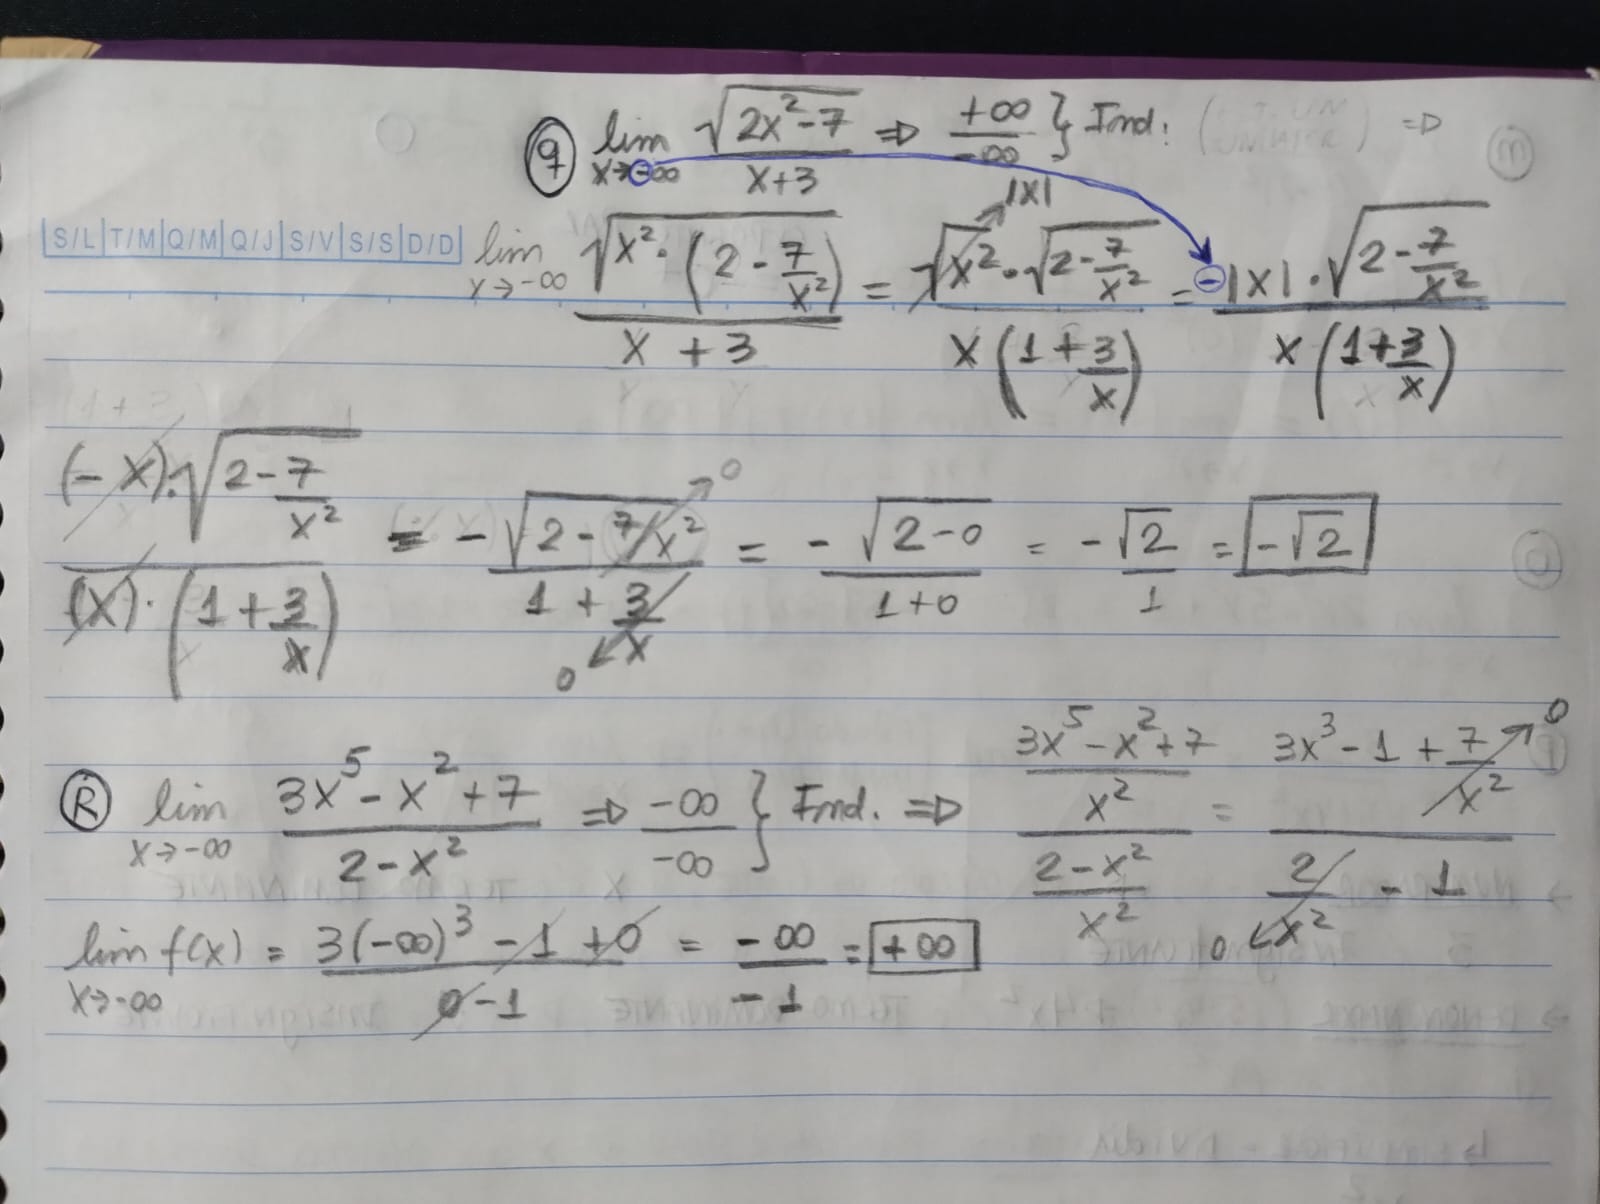 (q) lim x→-∞ √(2x²-7) / (x+3) ⇒ +∞ / -∞ } Ind. ⇒
S/L T/M Q/M Q/J S/V S/S D/D
lim x→-∞ √(x²·(2-7/x²)) / (x+3) = √x²·√(2-7/x²) / x(1+3/x) = -|x|·√(2-7/x²) / x(1+3/x)
|x|
(-x)·√(2-7/x²) / (x)·(1+3/x) = -√(2-7/x²) / (1+3/x) = -√(2-0) / (1+0) = -√2 / 1 = -√2
0
0
(R) lim x→-∞ (3x⁵-x²+7) / (2-x²) ⇒ -∞ / -∞ } Ind. ⇒ ((3x⁵-x²+7) / x²) / ((2-x²) / x²) = (3x³-1+7/x²) / (2/x²-1)
0
0
lim x→-∞ f(x) = (3(-∞)³-1+0) / (0-1) = -∞ / -1 = +∞